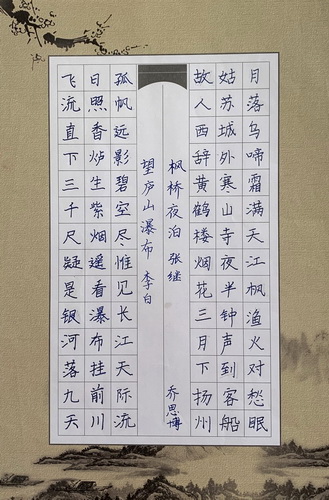 月落乌啼霜满天江帆渔火对愁眠
姑苏城外寒山寺夜半钟声到客船
故人西辞黄鹤楼烟花三月下扬州
枫桥夜泊 张继 乔思博
望庐山瀑布 李白
孤帆远影碧空尽惟见长江天际流
日照香炉生紫烟遥看瀑布挂前川
飞流直下三千尺疑是银河落九天